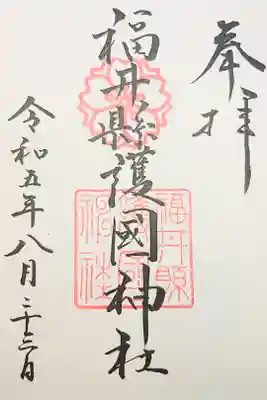 奉拝
福井縣護國神社
令和五年八月二十三日
福井縣
神社